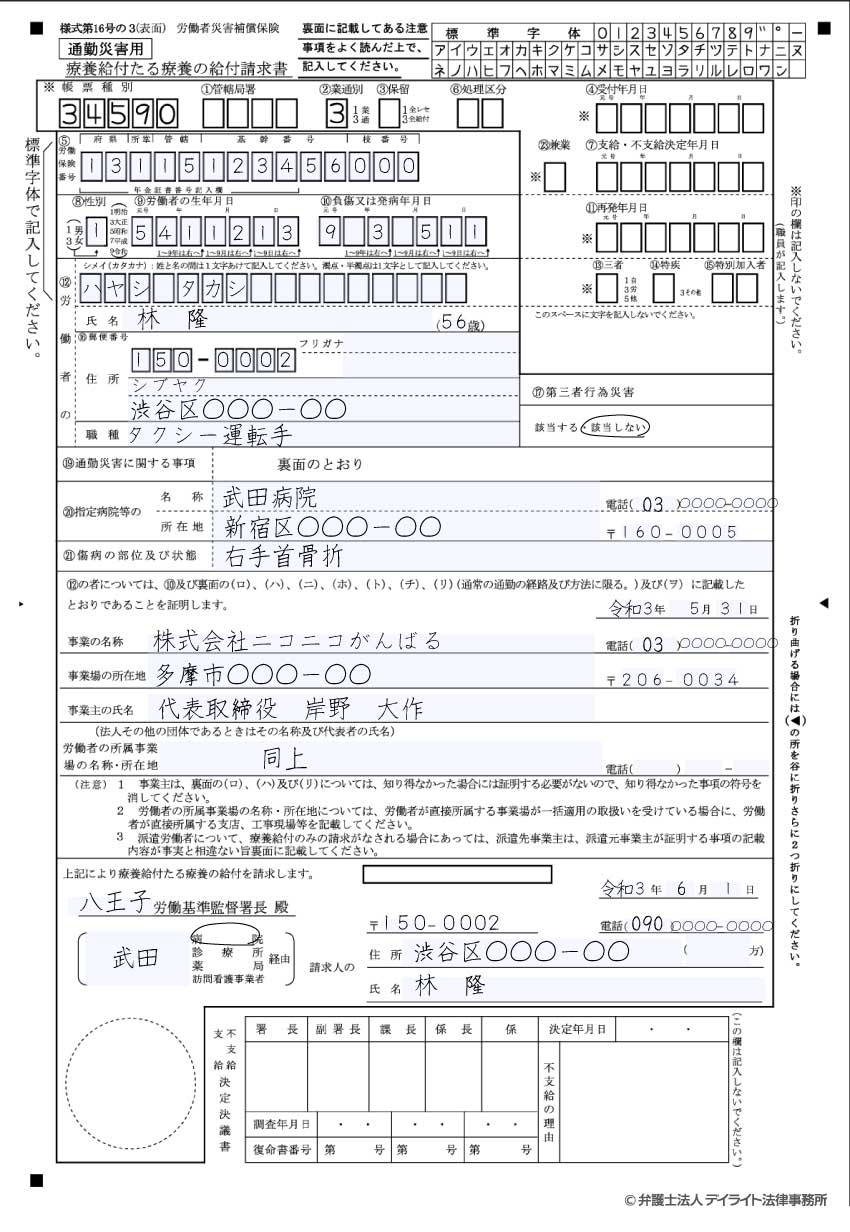 様式第16号の3(表面) 労働者災害補償保険
通勤災害用
療養給付たる療養の給付請求書
裏面に記載してある注意
事項をよく読んだ上で、
記入してください。
標準字体 0 1 2 3 4 5 6 7 8 9 ゛ ゜ ー
アイウエオカキクケコサシスセソタチツテトナニヌ
ネノハヒフヘホマミムメモヤユヨラリルレロワン
※ 帳票種別
34590
①管轄局署
②業通別
3
1業
3通
③保留
1全レセ
3金給付
⑥処理区分
④受付年月日
元号 年 月 日
※
標準字体で記入してください。
⑤労働保険番号
府県 所掌 管轄 基幹番号 枝番号
13115123456000
年金証書番号記入欄
㉓兼業
※
⑦支給・不支給決定年月日
元号 年 月 日
⑧性別
1
1男
3女
⑨労働者の生年月日
1明治
3大正
5昭和
7平成
9令和
元号 年 月 日
5411213
1〜9年は右へ 1〜9月は右へ 1〜9日は右へ
⑩負傷又は発病年月日
元号 年 月 日
9 3 511
1〜9年は右へ 1〜9月は右へ 1〜9日は右へ
⑪再発年月日
元号 年 月 日
※
シメイ(カタカナ):姓と名の間は1文字あけて記入してください。濁点・半濁点は1文字として記入してください。
ハヤシ タカシ
⑬三者
※
1自
3労
5他
⑭特疾
3その他
⑮特別加入者
このスペースに文字を記入しないでください。
※印の欄は記入しないでください。
(職員が記入します。)
⑫労働者の
氏名 林 隆 (56歳)
⑯郵便番号
150-0002
フリガナ
住所
シブヤク
渋谷区〇〇〇ー〇〇
職種 タクシー運転手
⑰第三者行為災害
該当する・該当しない
⑲通勤災害に関する事項 裏面のとおり
⑳指定病院等の
名称 武田病院 電話( 03 )〇〇〇〇-〇〇〇〇
所在地 新宿区〇〇〇ー〇〇 〒160-0005
㉑傷病の部位及び状態 右手首骨折
⑫の者については、⑩及び裏面の(ロ)、(ハ)、(ニ)、(ホ)、(ト)、(チ)、(リ)(通常の通勤の経路及び方法に限る。)及び(ヲ)に記載した
とおりであることを証明します。
令和3年 5月31日
事業の名称 株式会社ニコニコがんばる 電話( 03 )〇〇〇〇-〇〇〇〇
事業場の所在地 多摩市〇〇〇ー〇〇 〒206-0034
事業主の氏名 代表取締役 岸野 大作
(法人その他の団体であるときはその名称及び代表者の氏名)
労働者の所属事業
場の名称・所在地 同上 電話( ) -
(注意) 1 事業主は、裏面の(ロ)、(ハ)及び(リ)については、知り得なかった場合には証明する必要がないので、知り得なかった事項の符号を
消してください。
2 労働者の所属事業場の名称・所在地については、労働者が直接所属する事業場が一括適用の取扱いを受けている場合に、労働
者が直接所属する支店、工事現場等を記載してください。
3 派遣労働者について、療養給付のみの請求がなされる場合にあっては、派遣先事業主は、派遣元事業主が証明する事項の記載
内容が事実と相違ない旨裏面に記載してください。
折り曲げる場合には(◀)の所を谷に折りさらに2つ折りにしてください。
上記により療養給付たる療養の給付を請求します。
令和3年 6月 1日
八王子労働基準監督署長 殿
〒150-0002 電話( 090 )〇〇〇〇-〇〇〇〇
武田
病院
診療所
薬局
訪問看護事業者
経由
請求人の
住所 渋谷区〇〇〇ー〇〇 ( 方)
氏名 林 隆
支給不支給決定決議書
署長 副署長 課長 係長 係 決定年月日 ・ ・
不支給の理由
調査年月日 ・ ・ ・ ・ ・ ・
復命書番号 第 号 第 号 第 号
(この欄は記入しないでください。)
© 弁護士法人 デイライト法律事務所